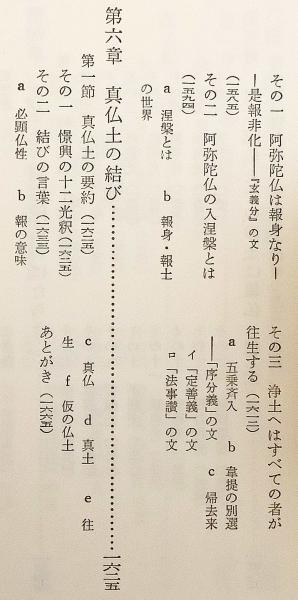 その一 阿弥陀仏は報身なり―
―是報非化――『玄義分』の文
(一五八五)
その二 阿弥陀仏の入涅槃とは
(一五九四)
a 涅槃とは b 報身・報土
の世界
その三 浄土へはすべての者が
往生する(一六一三)
a 五乗斉入 b 韋提の別選
――「序分義」の文 c 帰去来
イ「定善義」の文
ロ「法事讃」の文
第六章 真仏土の結び……………………………一六二五
第一節 真仏土の要約(一六二五)
その一 憬興の十二光釈(一六二五)
その二 結びの言葉(一六三三)
a 必顕仏性 b 報の意味
c 真仏 d 真土 e 往
生 f 仮の仏土
あとがき(一六六五)